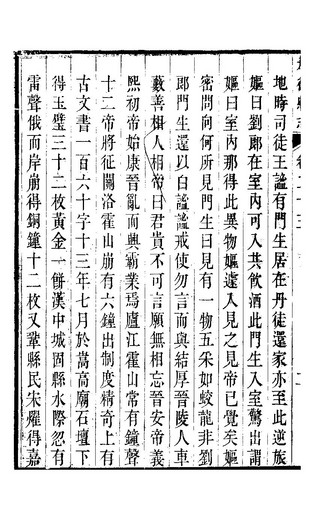 地時司徒王謐有門生居在丹徒還家亦至此逆旅
嫗曰劉郎在室內可入共飲酒此門生入室驚出謂
嫗曰室內那得此異物嫗遽入見之見帝已覺矣嫗
密問向何所見門生曰見有一物五采如蛟龍非劉
郎門生還以白謐謐戒使勿言而與結厚晉陵人車
藪善相人相帝曰君貴不可言願無相忘晉安帝義
熙初帝始康晉亂而興霸業焉廬江霍山常有鐘聲
十二帝將征關洛霍山崩有六鐘出制度精奇上有
古文書一百六十字十三年七月於嵩高廟石壇下
得玉璧三十二枚黃金一餅漢中城固縣水際忽有
雷聲俄而岸崩得銅鐘十二枚又鞏縣民宋燿得嘉